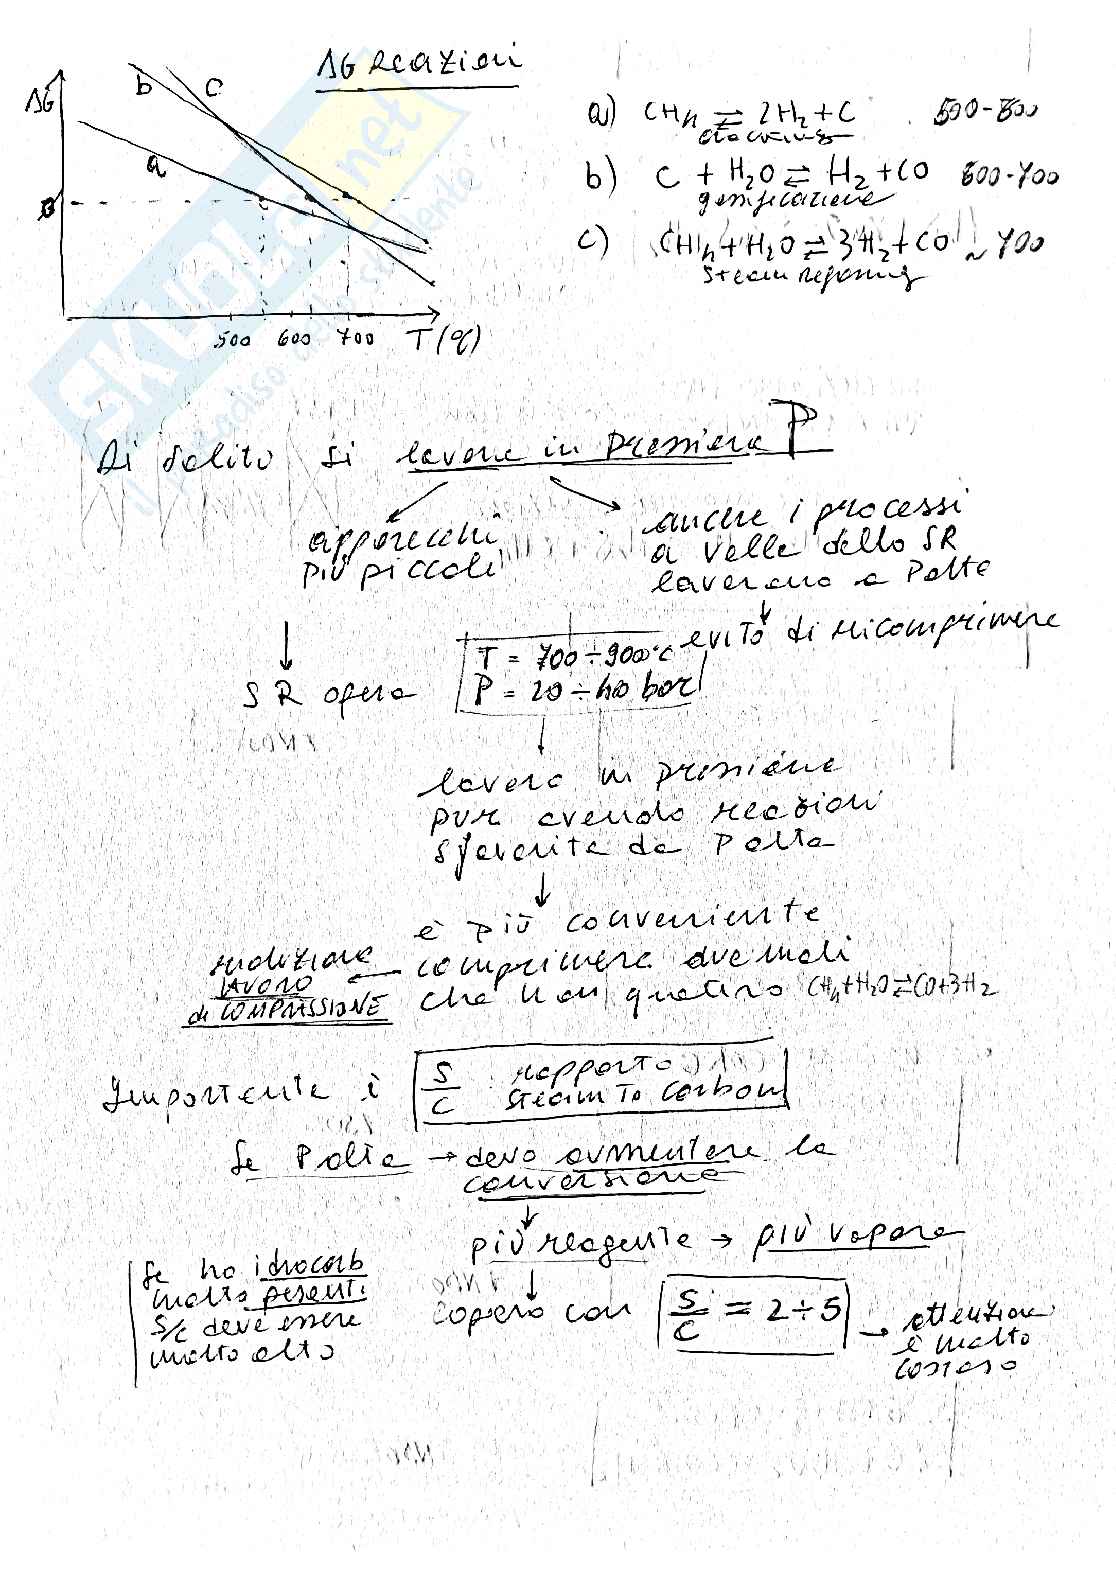 ΔG reazioni
ΔG
b
c
a
0
500 600 700 T (°C)
a) CH4 ⇄ 2H2 + C
cracking
b) C + H2O ⇄ H2 + CO 600-700
gassificazione
c) CH4 + H2O ⇄ 3H2 + CO ~ 700
steam reforming
SKUOLA.net
il paradiso dello studente
Di solito si lavora in pressione P
apparecchi
più piccoli
anche i processi
a valle dello SR
lavorano a P alte
evito di ricomprimere
SR opera
T = 700 ÷ 900°C
P = 20 ÷ 40 bar
lavoro in pressione
pur avendo reazioni
sfavorite da P alta
è più conveniente
comprimere due moli
che non quattro CH4+H2O⇄CO+3H2
riduzione
LAVORO
di COMPRESSIONE
Importante è
S/C rapporto
steam to carbon
Se P alta → devo aumentare la
conversione
più reagente → più vapore
opero con S/C = 2 ÷ 5
→ attenzione
è molto
costoso
Se ho idrocarb
molto pesanti
S/C deve essere
molto alto